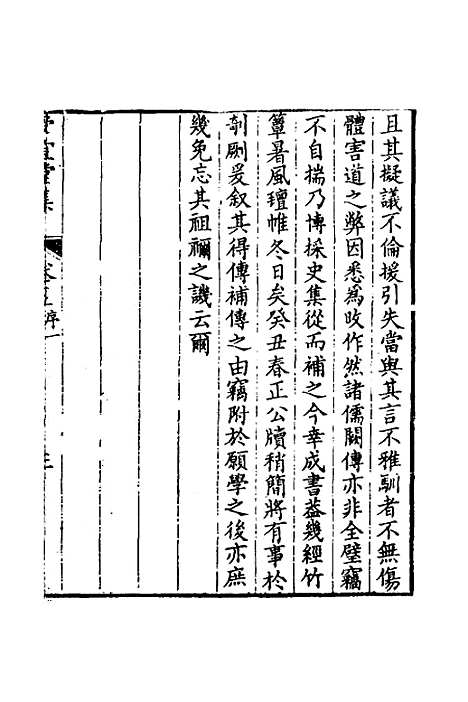 且其擬議不倫援引失當與其言不雅馴者不無傷
體害道之弊因悉為改作然諸儒闕傳亦非全璧竊
不自揣乃博採史集從而補之今幸成書葢幾經竹
簟暑風璮帷冬日矣癸丑春正公牘稍簡將有事於
剞劂爰叙其得傳補傳之由竊附於願學之後亦庶
幾免忘其祖禰之譏云爾
堂集 卷五序一